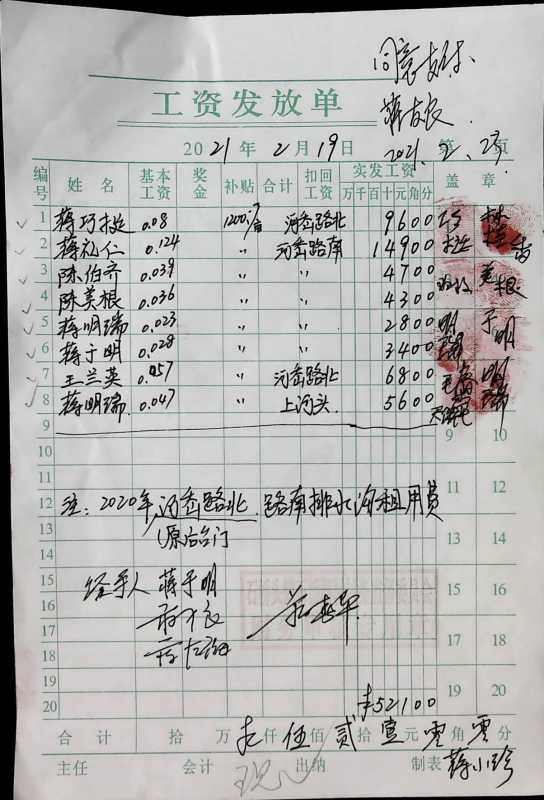 同意
蒋友农
工资发放单
2021年2月19日
2021.2.23
第 页
编号 姓名 基本工资 奖金 补贴 合计 扣回工资 实发工资 盖章
万千百十元角分
1 蒋巧 0.08 1200/亩 河岙路北 9600
2 蒋礼仁 0.124 〃 河岙路南 14900
3 陈伯齐 0.039 〃 〃 4700
4 陈美根 0.036 〃 〃 4300 美根
5 蒋明瑞 0.023 〃 〃 2800 明瑞
6 蒋于明 0.028 〃 〃 3400 于明
7 王兰英 0.057 〃 河岙路北 6800
8 蒋明瑞 0.047 〃 上河头 5600 明瑞
9 9 10
10
11 11 12
12 注:2020年河岙路北、路南排水沟租用费
13 (原后台门 13 14
14
15 经手人 蒋于明 15 16
16
17 17 18
18
19 19 20
20 ¥52100
合计 拾 万 仟伍佰贰拾壹元零角零分
主任 会计 出纳 制表 蒋小珍
现